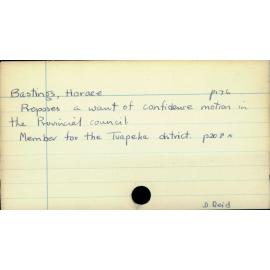 Bastings, Horace p176
Proposes a want of confidence motion in
the Provincial council.
Member for the Tuapeka district. p208
D. Reid